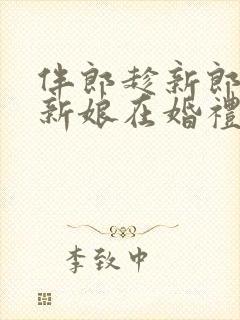 伴郎趁新郎
新娘在婚禮
李致中